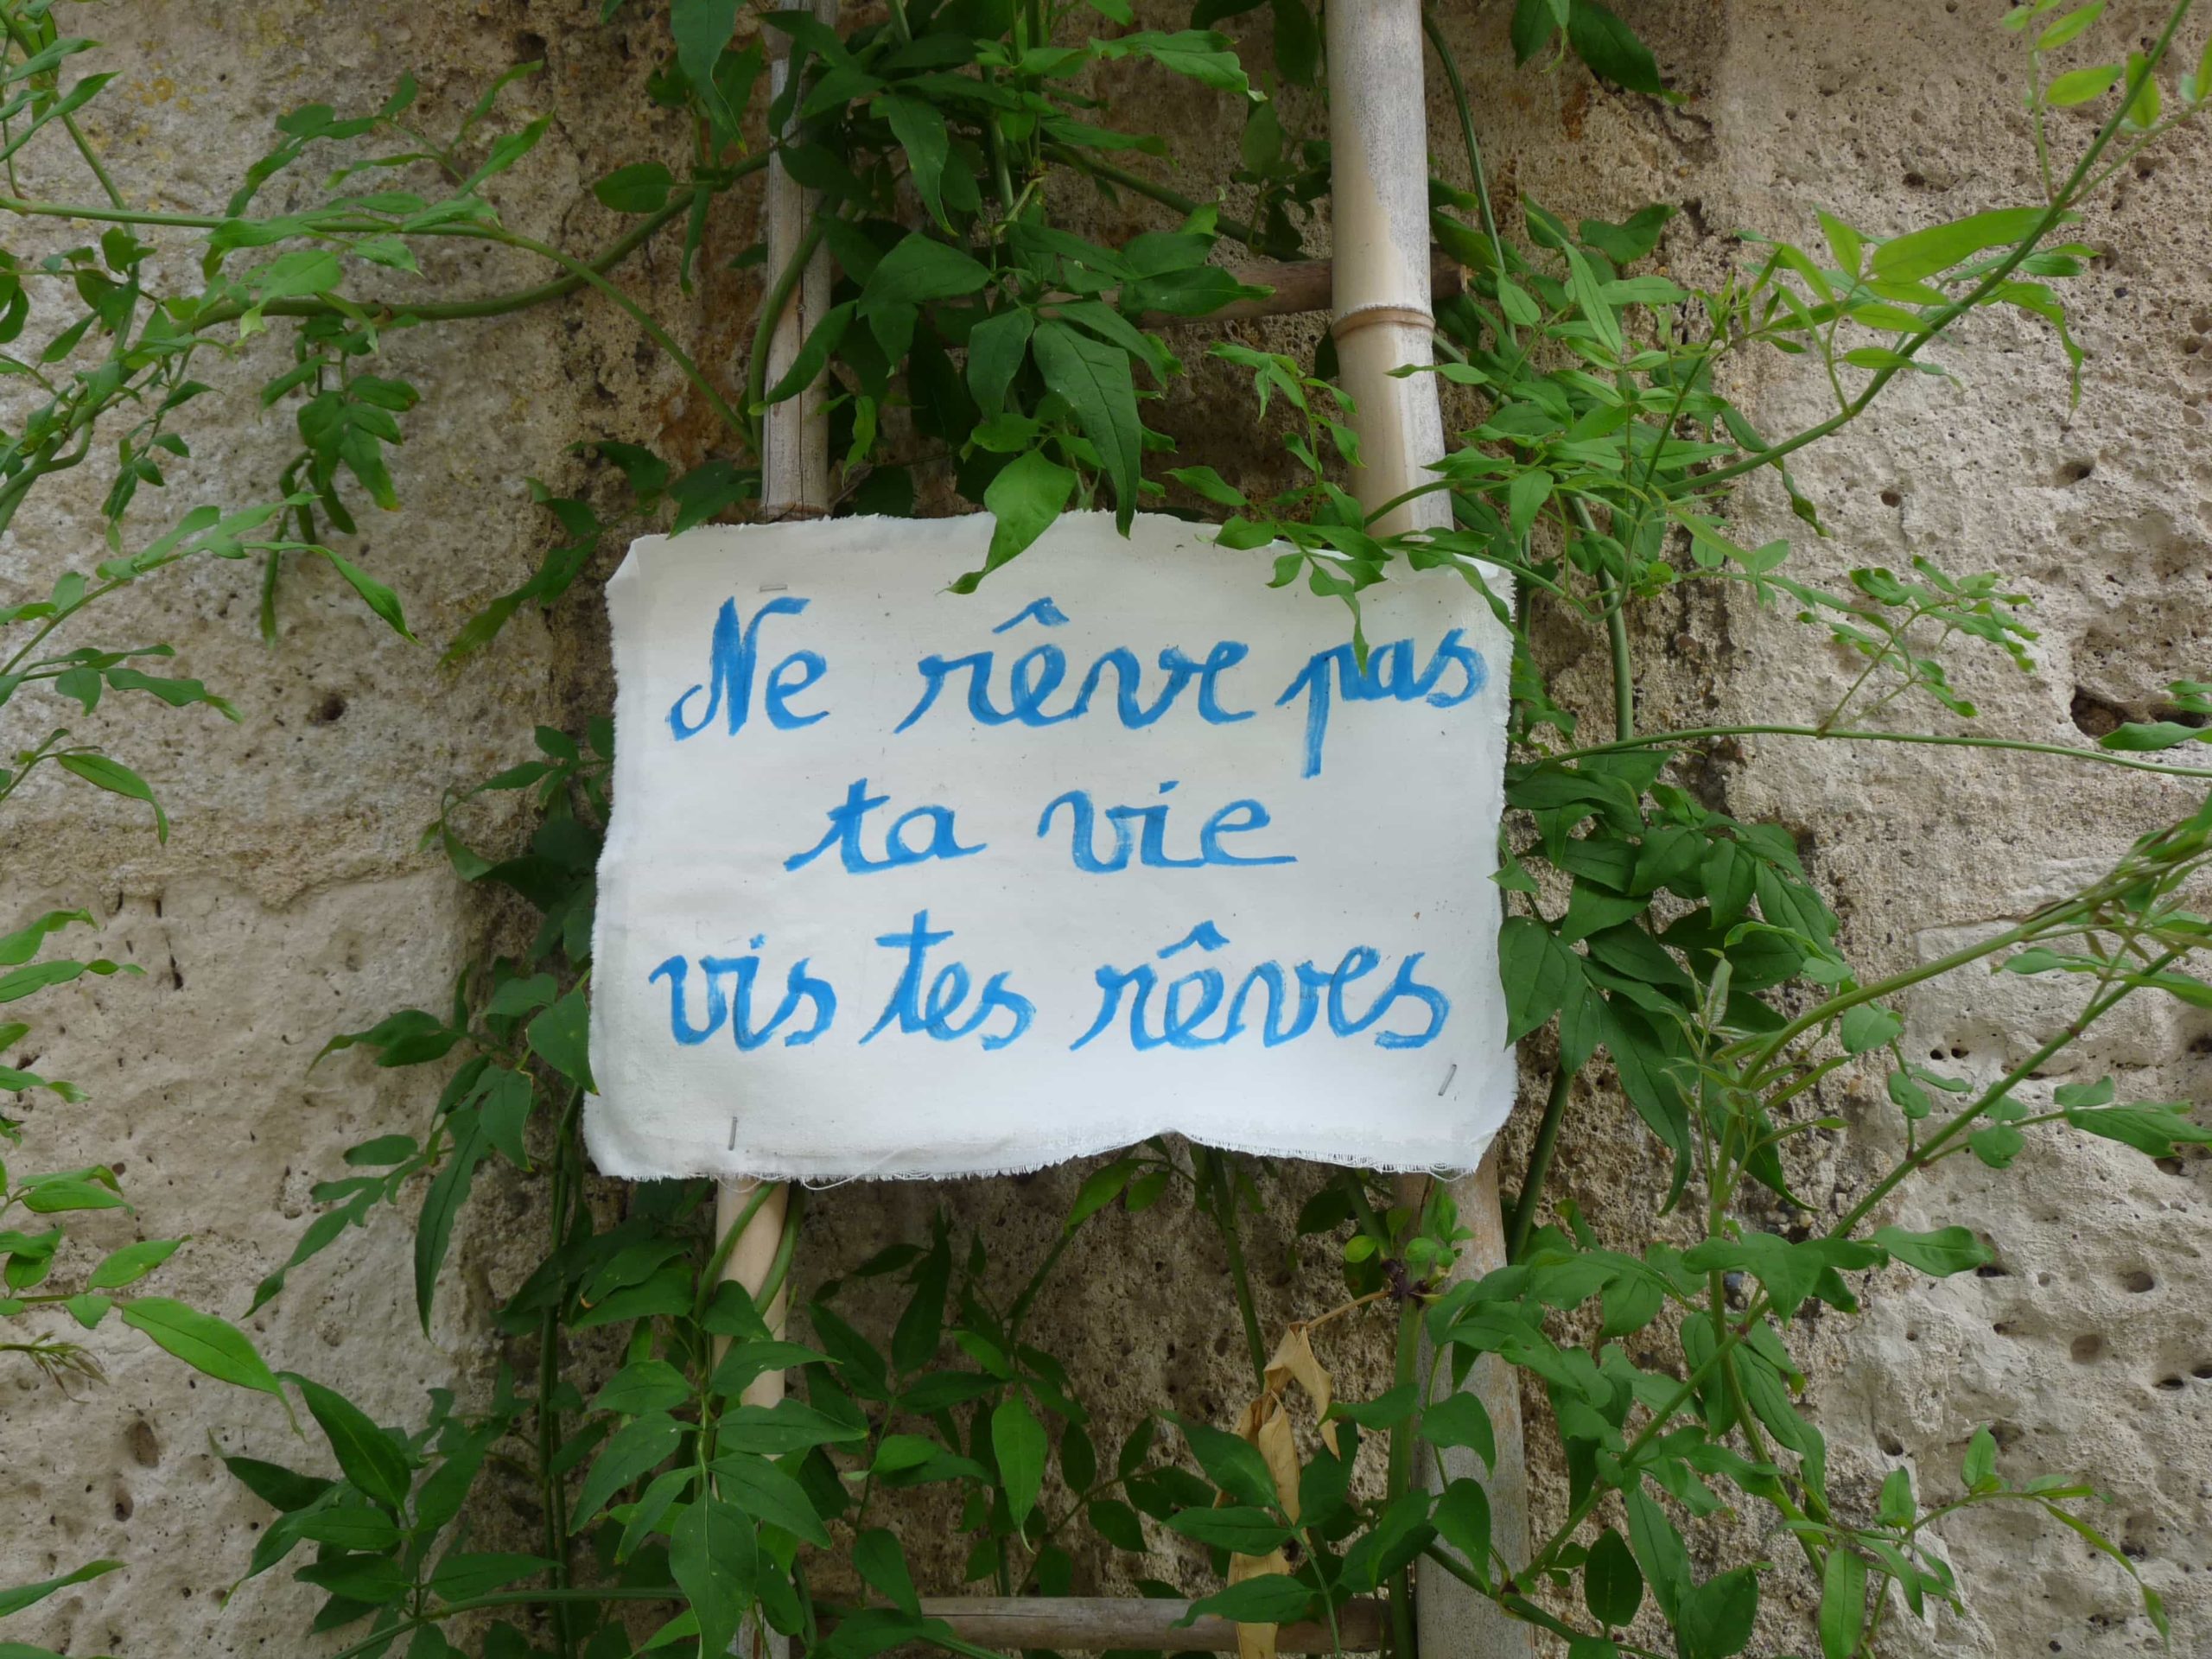 Ne rêve pas
ta vie
vis tes rêves